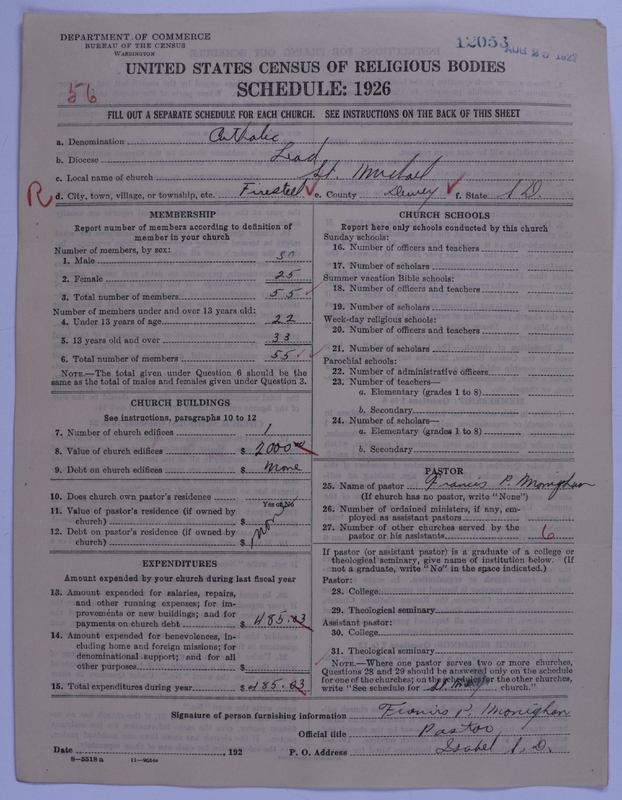 DEPARTMENT OF COMMERCE
BUREAU OF THE CENSUS
WASHINGTON
12053
AUG 25 1927
UNITED STATES CENSUS OF RELIGIOUS BODIES
SCHEDULE: 1926
56
FILL OUT A SEPARATE SCHEDULE FOR EACH CHURCH. SEE INSTRUCTIONS ON THE BACK OF THIS SHEET
a. Denomination Catholic
b. Diocese Lead
c. Local name of church St. Michael
R d. City, town, village, or township, etc. Firesteel e. County Dewey f. State S.D.
MEMBERSHIP
Report number of members according to definition of member in your church
Number of members, by sex:
1. Male 30
2. Female 25
3. Total number of members 55
Number of members under and over 13 years old:
4. Under 13 years of age 22
5. 13 years old and over 33
6. Total number of members 55
NOTE.—The total given under Question 6 should be the
same as the total of males and females given under Question 3.
CHURCH BUILDINGS
See instructions, paragraphs 10 to 12
7. Number of church edifices 1
8. Value of church edifices $ 2000
9. Debt on church edifices $ None
10. Does church own pastor's residence
Yes or No
11. Value of pastor's residence (if owned by
church) $
12. Debt on pastor's residence (if owned by
church) $
None
EXPENDITURES
Amount expended by your church during last fiscal year
13. Amount expended for salaries, repairs,
and other running expenses; for im-
provements or new buildings; and for
payments on church debt $ 485.03
14. Amount expended for benevolences, in-
cluding home and foreign missions; for
denominational support; and for all
other purposes $
15. Total expenditures during year $ 485.03
CHURCH SCHOOLS
Report here only schools conducted by this church
Sunday schools:
16. Number of officers and teachers
17. Number of scholars
Summer vacation Bible schools:
18. Number of officers and teachers
19. Number of scholars
Week-day religious schools:
20. Number of officers and teachers
21. Number of scholars
Parochial schools:
22. Number of administrative officers
23. Number of teachers—
a. Elementary (grades 1 to 8)
b. Secondary
24. Number of scholars—
a. Elementary (grades 1 to 8)
b. Secondary
PASTOR
25. Name of pastor Francis P. Monighan
(If church has no pastor, write "None")
26. Number of ordained ministers, if any, em-
ployed as assistant pastors
27. Number of other churches served by the
pastor or his assistants 6
If pastor (or assistant pastor) is a graduate of a college or
theological seminary, give name of institution below. (If
not a graduate, write "No" in the space indicated.)
Pastor:
28. College
29. Theological seminary
Assistant pastor:
30. College
31. Theological seminary
NOTE.—Where one pastor serves two or more churches,
Questions 28 and 29 should be answered only on the schedule
for one of the churches; on the schedules for the other churches,
write "See schedule for St. Mary church."
Signature of person furnishing information Francis P. Monighan
Official title Pastor
Date , 192 P. O. Address Isabel S.D.
8—5518a 11—9536a